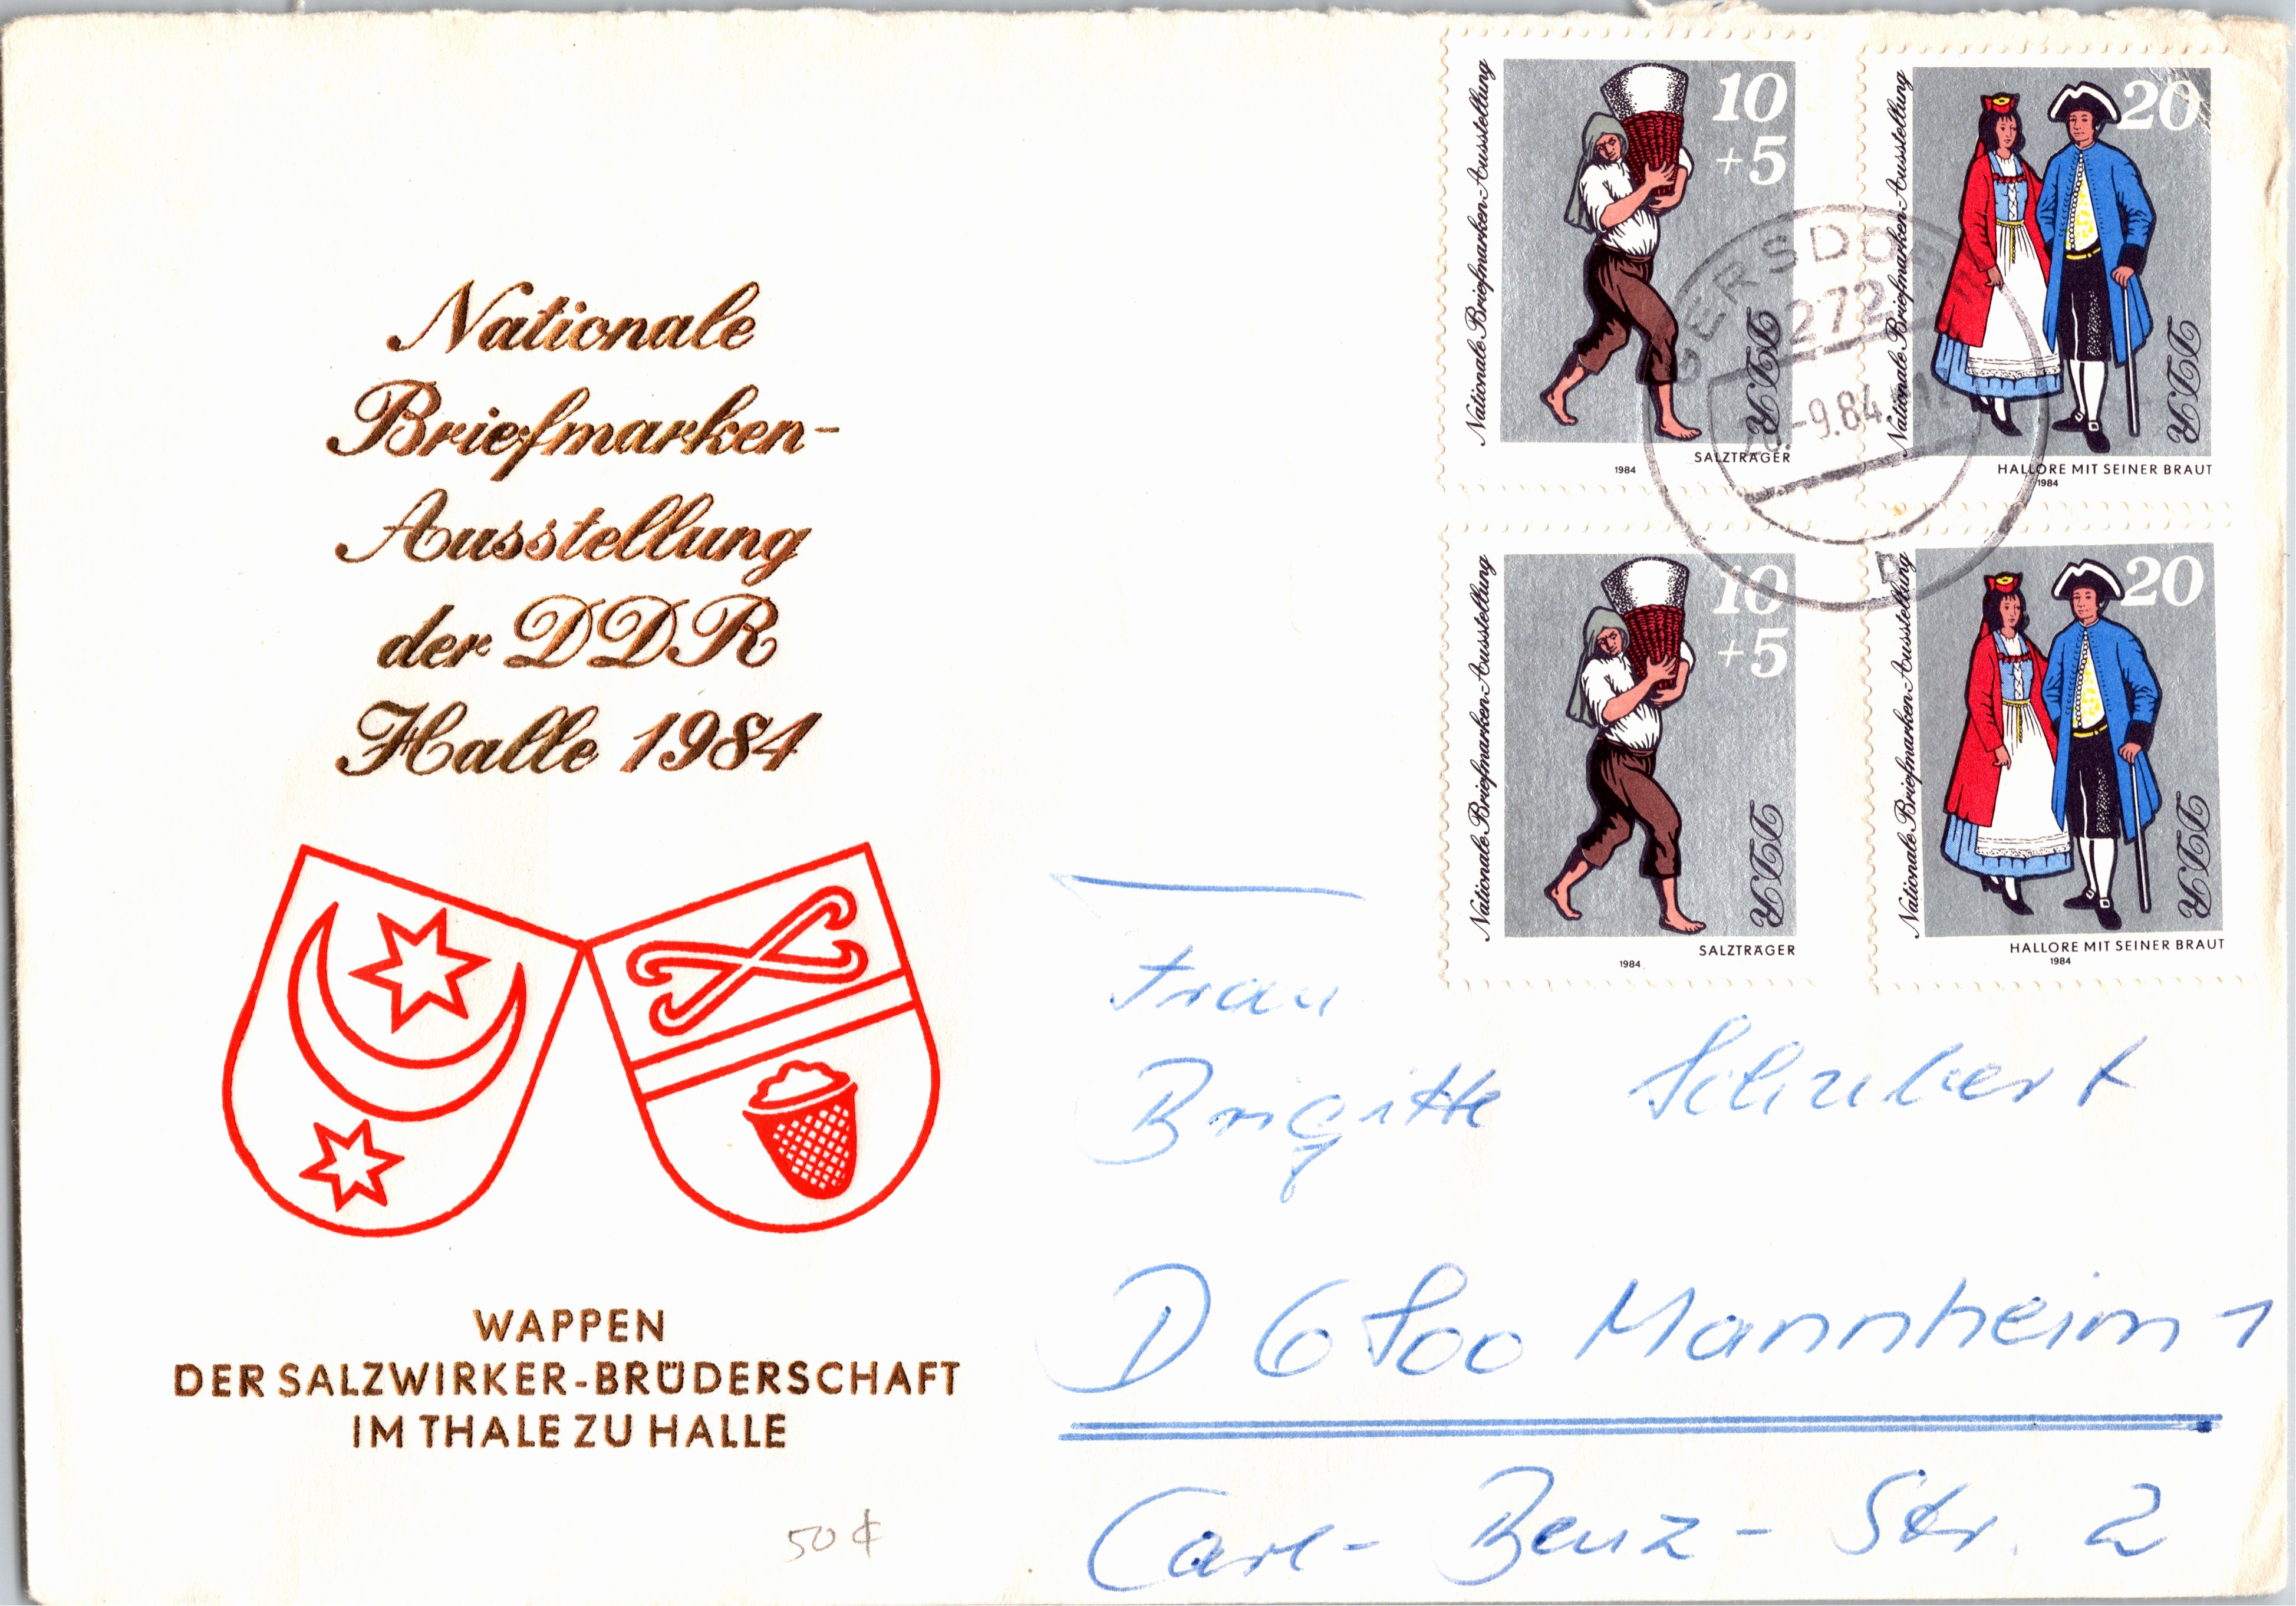 Nationale
Briefmarken-
Ausstellung
der DDR
Halle 1984
WAPPEN
DER SALZWIRKER-BRÜDERSCHAFT
IM THALE ZU HALLE
50 ¢
Nationale Briefmarken-Ausstellung
10
+5
DDR
SALZTRÄGER
1984
Nationale Briefmarken-Ausstellung
20
DDR
HALLORE MIT SEINER BRAUT
1984
GERSDORF
272
-9.84
Nationale Briefmarken-Ausstellung
10
+5
DDR
SALZTRÄGER
1984
Nationale Briefmarken-Ausstellung
20
DDR
HALLORE MIT SEINER BRAUT
1984
Frau
Brigitte Schubert
D 6800 Mannheim 1
Carl-Benz-Str. 2